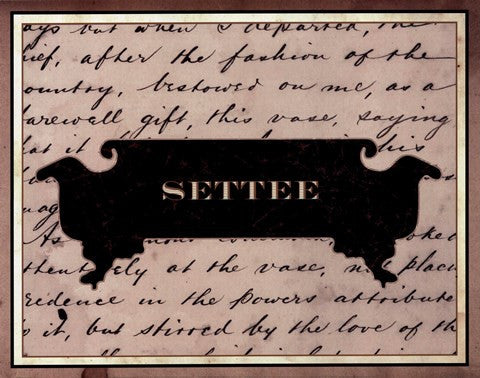 ays but when I departed, the
ief, after the fashion of the
ountry, bestowed on me, as a
arewell gift, this vase, saying
hat it his
SETTEE
As common, looked
ely at the vase, place
redence in the powers attribute
o it, but stirred by the love of th